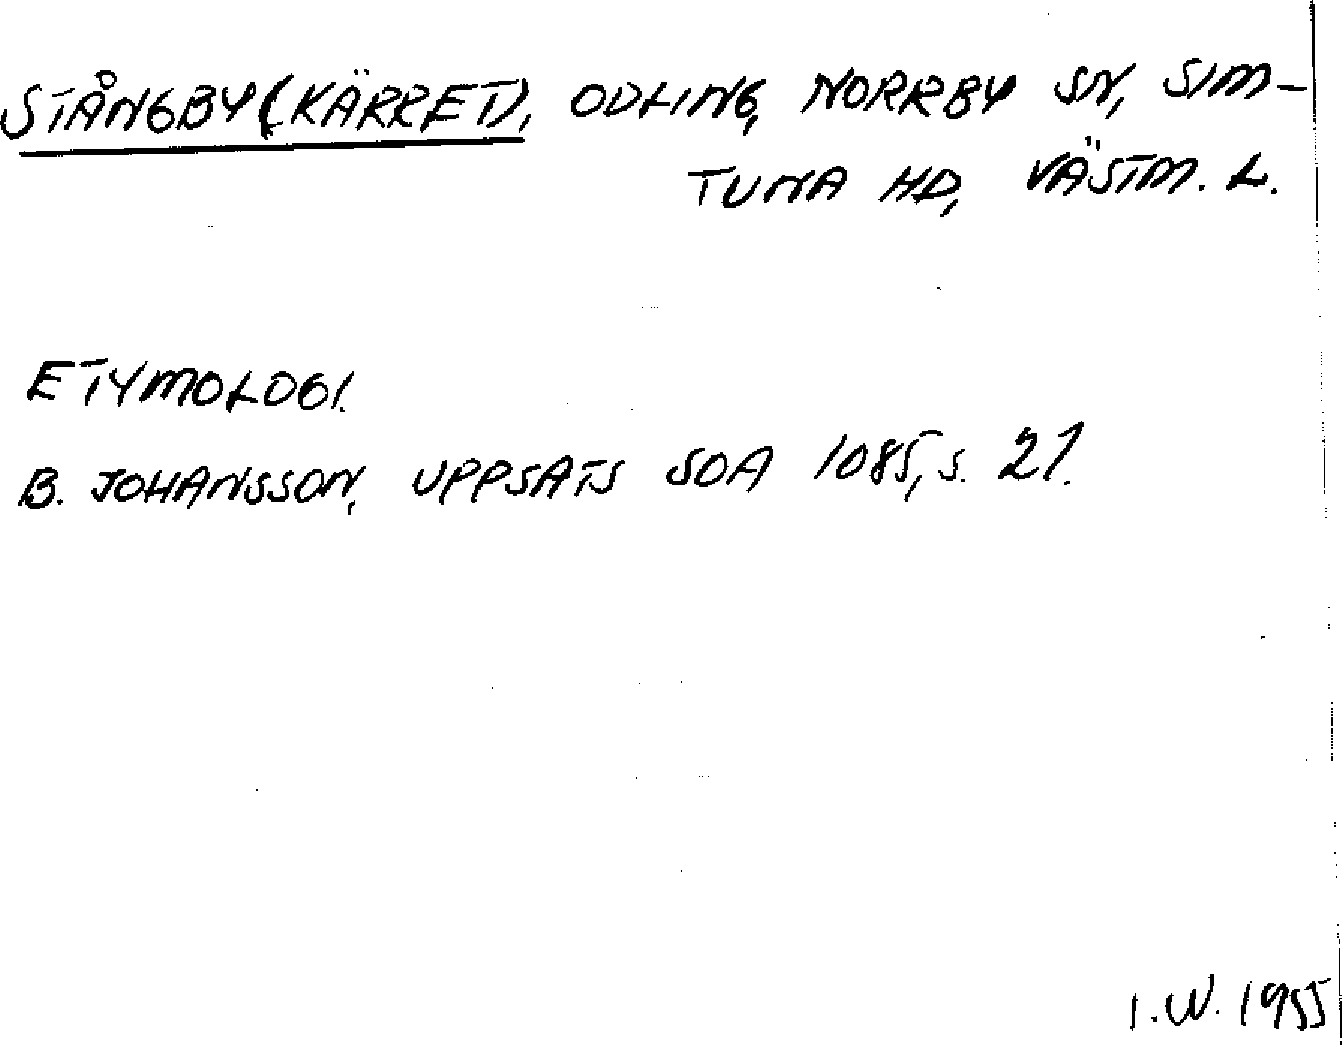 STÅNGBY(KÄRRET), ODLING, NORRBY SN, SIM-
TUNA HD, VÄSTM. L.
ETYMOLOGI.
B. JOHANSSON, UPPSATS SOA 1085, S. 27.
I.W. 1955